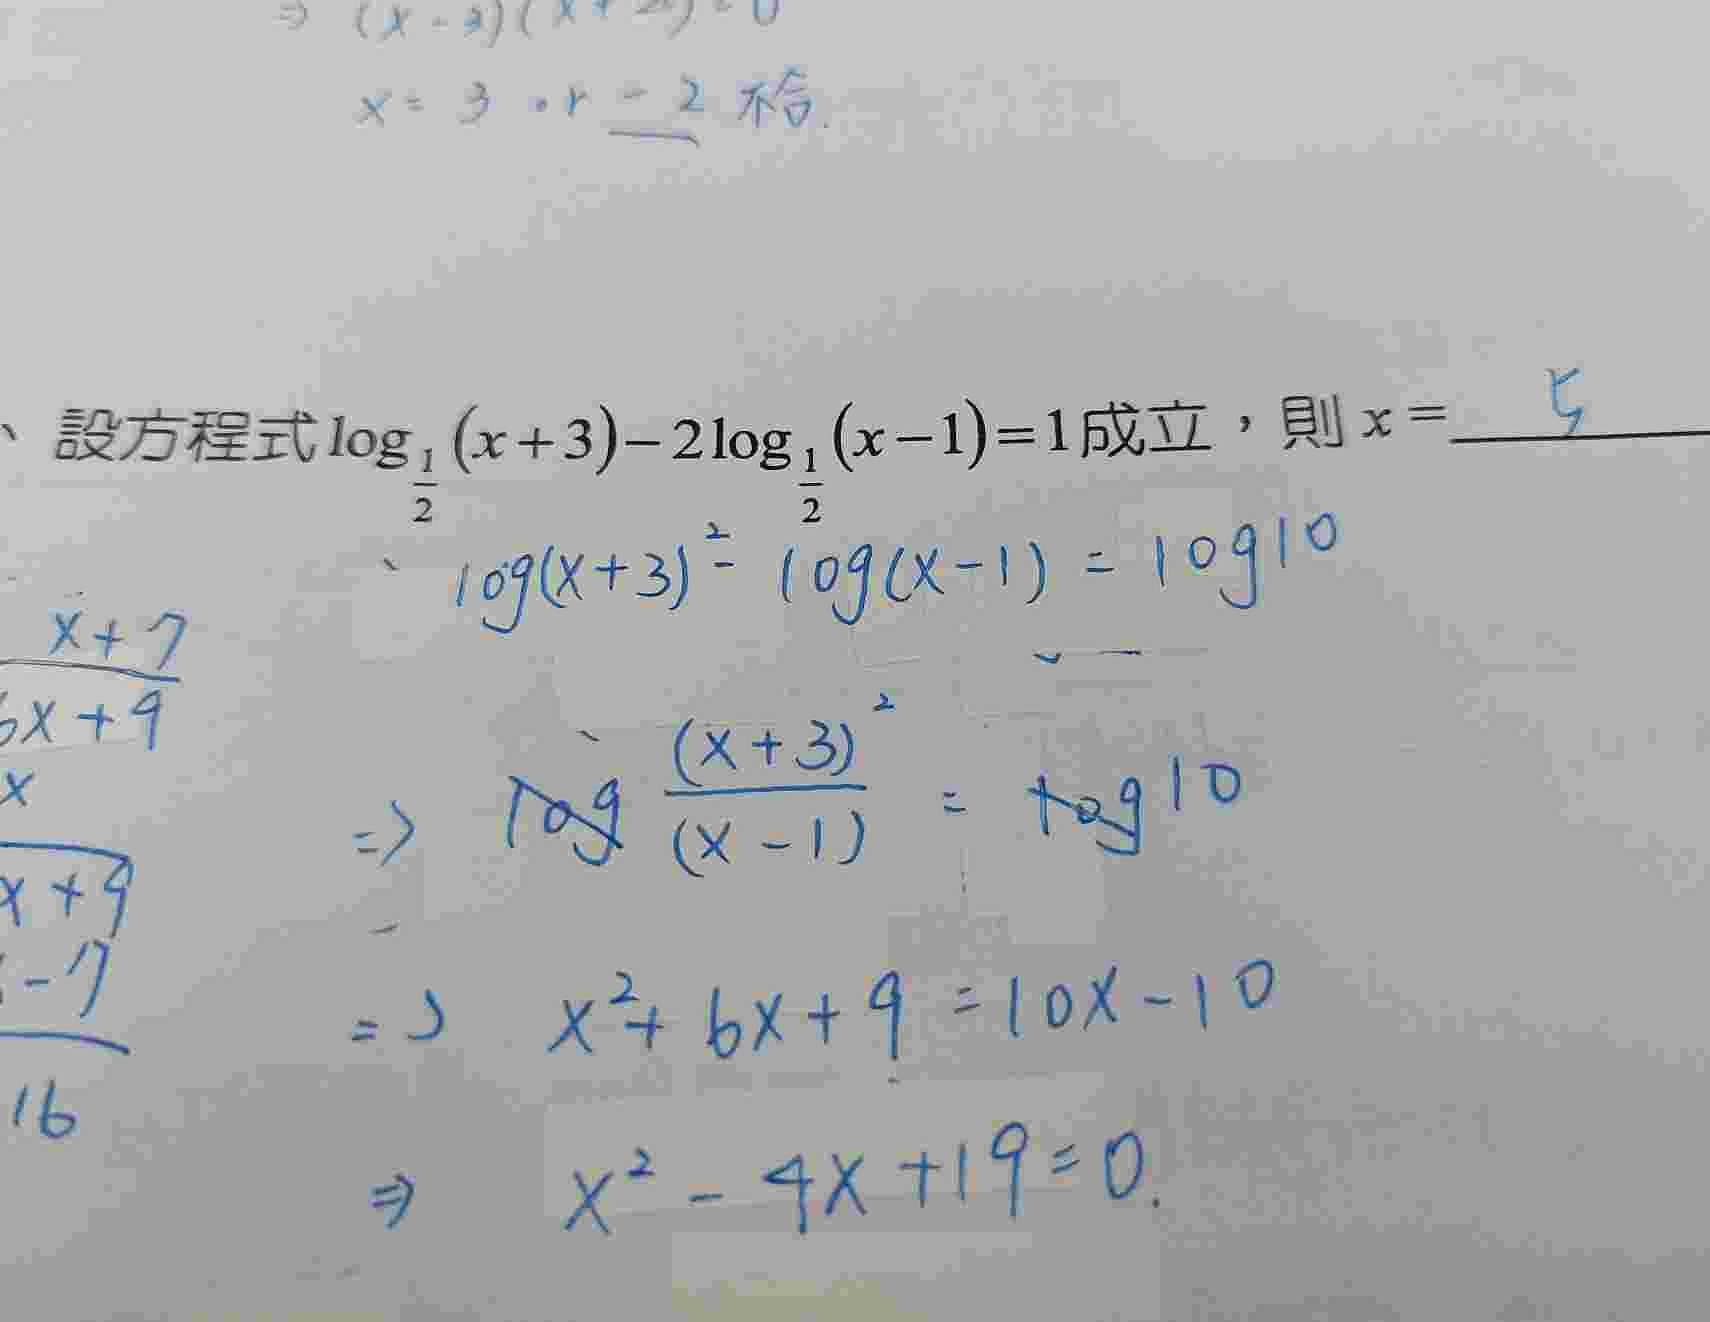 ⇒ (x - 3)(x + 2) = 0
x = 3 or -2 不合.
、設方程式 log_{1/2}(x+3)−2log_{1/2}(x−1)=1成立，則 x = 5
log(x+3)² - log(x-1) = log10
x+7
6x+9
⇒ log (x+3)²/(x-1) = log10
x
x+9
-7
⇒ x²+6x+9=10x-10
16
⇒ x²-4x+19=0.